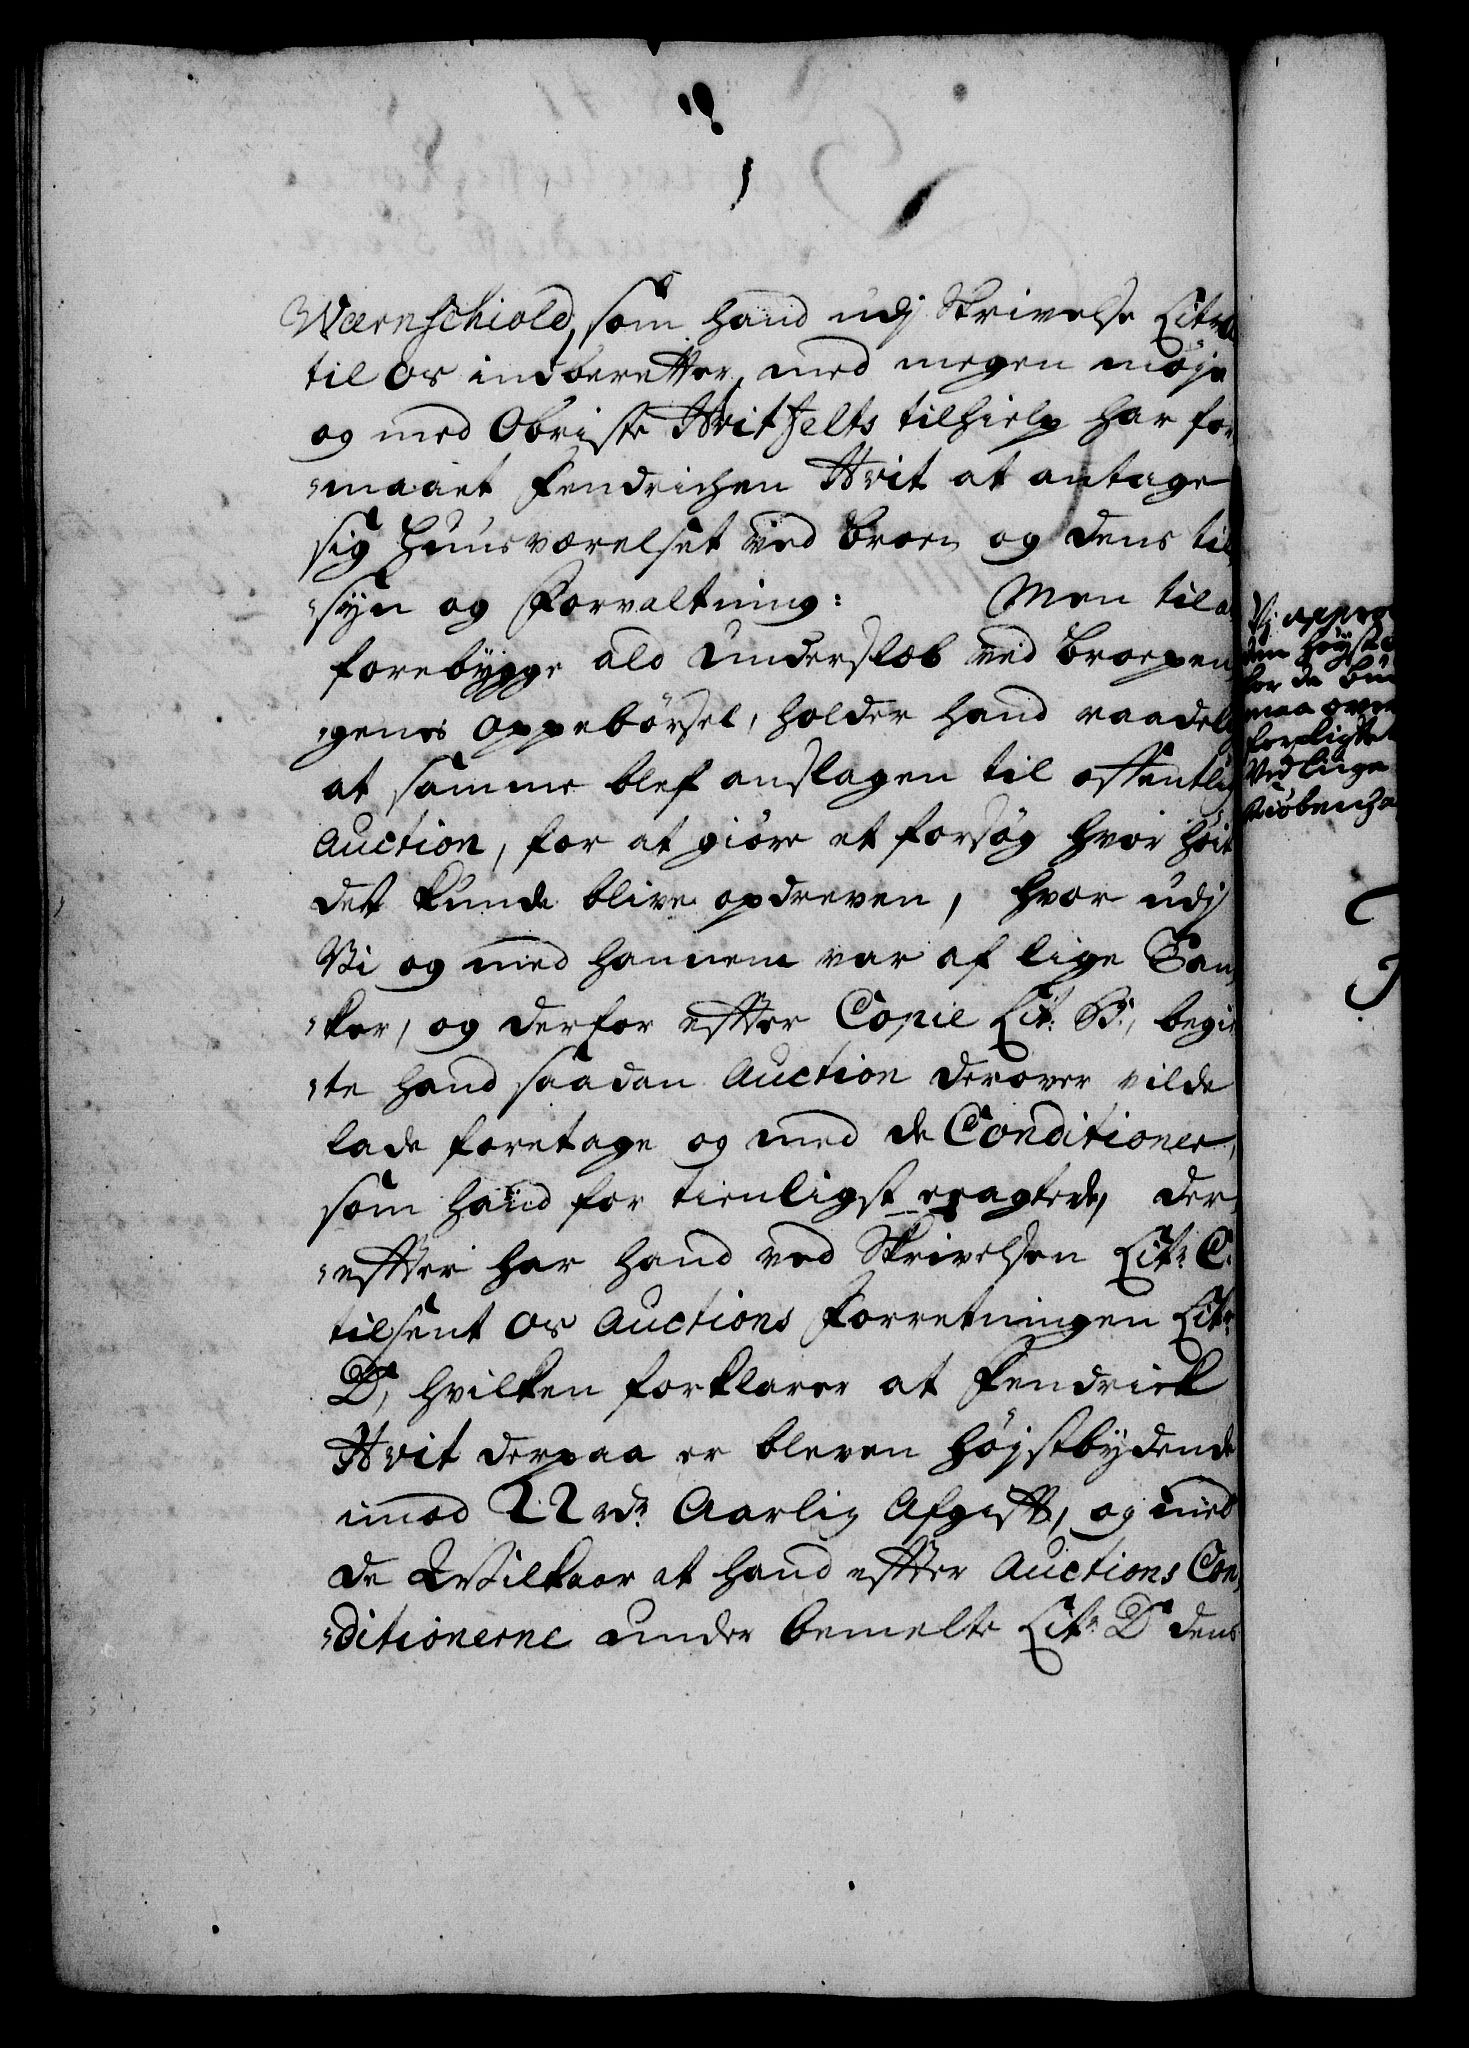 Wærnschiold, som hand udj Skrivelse Litr A
til os indberetter, med megen møje
og med Obriste Hvitfelts tilhielp har for
-maaet Fendrichen Hvit at antage
sig Huusværelset ved Broen og dens til
-syn og Forvaltning: Men til at
forebygge ald Underslæb ved Broepen
-genes oppebörsel, holder hand raadel:
at samme blef anslagen til offentlig
Auction, for at giöre et forsög hvor höit
det kunde blive opdreven, hvor udj
Vi og med hannem var af lige Tan
-ker, og derfor efter Copie Lit: B:, begier
-te hand saadan Auction derover vilde
lade foretage og med de Conditioner,
som hand for tienligst eragtede, der
-efter har hand ved Skrivelsen Litr C.
tilsent os Auctions Forretningen Litr
D, hvilken forklarer at Fendrick
Hvit derpaa er bleven højstbydende
imod 22 rdr Aarlig Afgift, og med
de Vilkaar at hand efter Auctions Con
-ditionerne under bemelte Litr D dens
Vj appro
den höyst
for de
maa over
forpligte
Ved lige
Kiöbenha